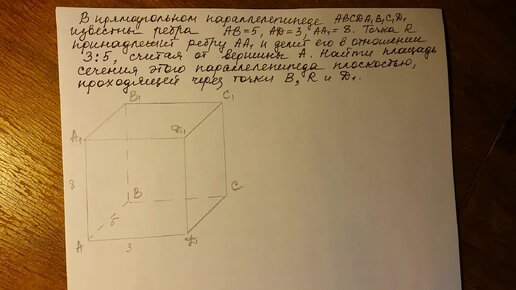 В прямоугольном параллелепипеде ABCDA₁B₁C₁D₁
известны ребра AB=5, AD=3, AA₁=8. Точка R
принадлежит ребру AA₁ и делит его в отношении
3:5, считая от вершины A. Найти площадь
сечения этого параллелепипеда плоскостью,
проходящей через точки B, R и D₁.
B₁
C₁
A₁
D₁
8
B
C
5
A
3
D